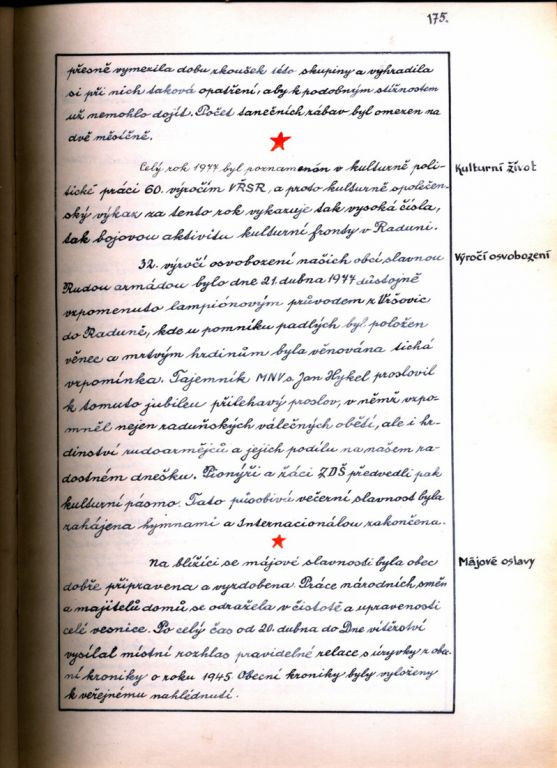 175.
přesně vymezila dobu zkoušek této skupiny a vyhradila
si při nich taková opatření, aby k podobným stížnostem
už nemohlo dojít. Počet tanečních zábav byl omezen na
dvě měsíčně.
Celý rok 1977 byl poznamenán v kulturně poli-
Kulturní život
tické práci 60. výročím VŘSR, a proto kulturně společen-
ský výkaz za tento rok vykazuje tak vysoká čísla,
tak bojovou aktivitu kulturní fronty v Raduni.
32. výročí osvobození našich obcí slavnou
Výročí osvobození
Rudou armádou bylo dne 21. dubna 1977 důstojně
vzpomenuto lampiónovým průvodem z Vršovic
do Raduně, kde u pomníku padlých byl položen
věnec a mrtvým hrdinům byla věnována tichá
vzpomínka. Tajemník MNV s. Jan Hykel proslovil
k tomuto jubileu přiléhavý proslov, v němž vzpo-
mněl nejen raduňských válečných obětí, ale i hr-
dinství rudoarmějců a jejich podílu na našem ra-
dostném dnešku. Pionýři a žáci ZDŠ předvedli pak
kulturní pásmo. Tato působivá večerní slavnost byla
zahájena hymnami a Internacionálou zakončena.
Na blížící se májové slavnosti byla obec
Májové oslavy
dobře připravena a vyzdobena. Práce národních směn
a majitelů domů se odrážela v čistotě a upravenosti
celé vesnice. Po celý čas od 20. dubna do Dne vítězství
vysílal místní rozhlas pravidelné relace s úryvky z obe-
ní kroniky o roku 1945. Obecní kroniky byly vyloženy
k veřejnému nahlédnutí.